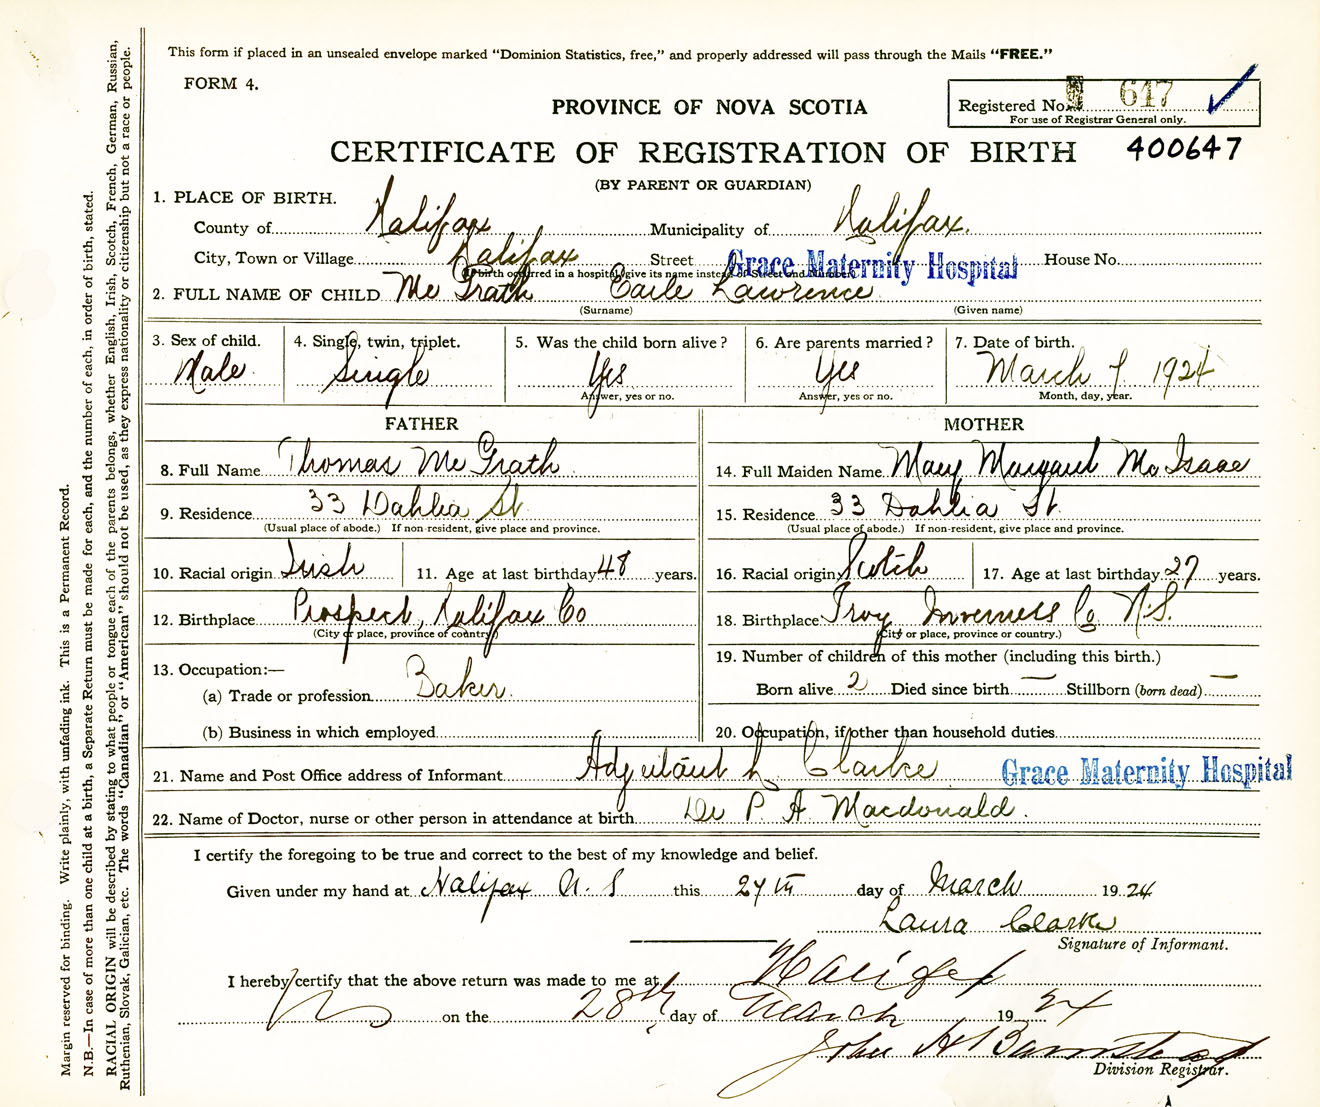 This form if placed in an unsealed envelope marked “Dominion Statistics, free,” and properly addressed will pass through the Mails “FREE.”
FORM 4.
PROVINCE OF NOVA SCOTIA
Registered No. 647
For use of Registrar General only.
CERTIFICATE OF REGISTRATION OF BIRTH 400647
(BY PARENT OR GUARDIAN)
1. PLACE OF BIRTH.
County of Halifax Municipality of Halifax.
City, Town or Village Halifax Street Grace Maternity Hospital House No.
(If birth occurred in a hospital, give its name instead of Street and Number)
2. FULL NAME OF CHILD Mc Grath Earle Lawrence
(Surname) (Given name)
3. Sex of child. 4. Single, twin, triplet. 5. Was the child born alive? 6. Are parents married? 7. Date of birth.
Male Single Yes Yes March 1924
Answer, yes or no. Answer, yes or no. Month, day, year.
FATHER MOTHER
8. Full Name Thomas Mc Grath 14. Full Maiden Name Mary Margaret Mc Isaac
9. Residence 33 Dahlia St 15. Residence 33 Dahlia St.
(Usual place of abode.) If non-resident, give place and province. (Usual place of abode.) If non-resident, give place and province.
10. Racial origin Irish 11. Age at last birthday 48 years. 16. Racial origin Scotch 17. Age at last birthday 27 years.
12. Birthplace Prospect, Halifax Co 18. Birthplace Troy Inverness Co N.S.
(City or place, province or country) (City or place, province or country.)
13. Occupation:— 19. Number of children of this mother (including this birth.)
(a) Trade or profession Baker. Born alive 2 Died since birth — Stillborn (born dead) —
(b) Business in which employed 20. Occupation, if other than household duties
21. Name and Post Office address of Informant Adjutant L Clarke Grace Maternity Hospital
22. Name of Doctor, nurse or other person in attendance at birth Dr P. A. Macdonald.
I certify the foregoing to be true and correct to the best of my knowledge and belief.
Given under my hand at Halifax N.S this 27th day of March 1924
Laura Clarke
Signature of Informant.
I hereby certify that the above return was made to me at Halifax
NS on the 28th day of March 1924
John A Barnstead
Division Registrar.
Margin reserved for binding. Write plainly, with unfading ink. This is a Permanent Record.
N.B.—In case of more than one child at a birth, a Separate Return must be made for each, and the number of each, in order of birth, stated.
RACIAL ORIGIN will be described by stating to what people or tongue each of the parents belongs, whether English, Irish, Scotch, French, German, Russian,
Ruthenian, Slovak, Galician, etc. The words “Canadian” or “American” should not be used, as they express nationality or citizenship but not a race or people.